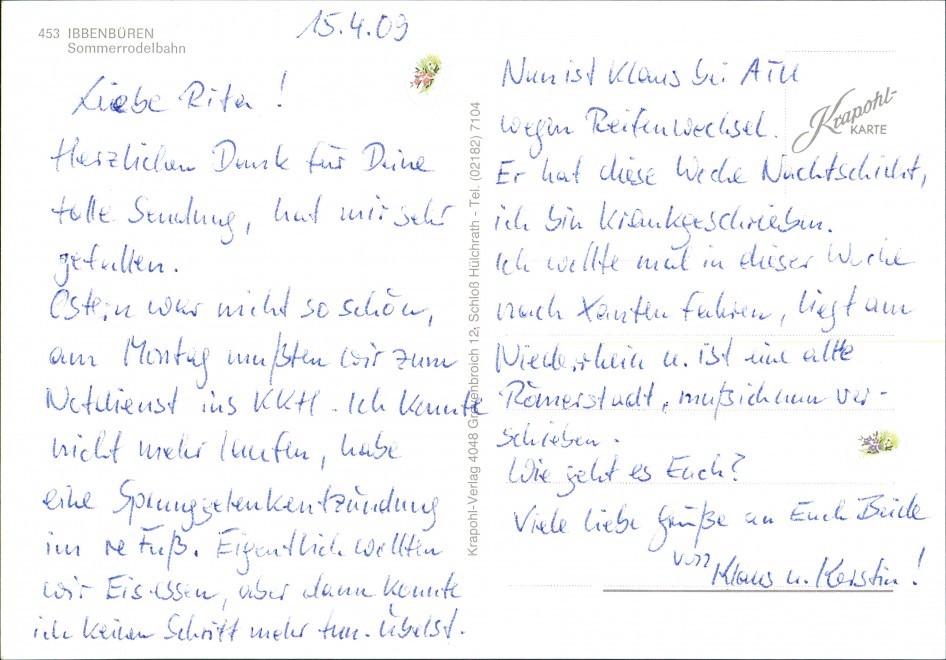 453 IBBENBÜREN
Sommerrodelbahn
15.4.09
Liebe Rita!
Herzlichen Dank für Deine
tolle Sendung, hat mir sehr
gefallen.
Ostern war nicht so schön,
am Montag mußten wir zum
Notdienst ins KKH. Ich konnte
nicht mehr laufen, habe
eine Sprunggelenkentzündung
im re Fuß. Eigentlich wollten
wir Eis essen, aber dann konnte
ich keinen Schritt mehr tun. Übelst.
Krapohl-Verlag 4048 Grevenbroich 12, Schloß Hülchrath - Tel. (02182) 7104
Nun ist Klaus bei ATU
wegen Reifenwechsel.
Krapohl-
KARTE
Er hat diese Woche Nachtschicht,
ich bin krankgeschrieben.
Ich wollte mal in dieser Woche
nach Xanten fahren, liegt am
Niederrhein u. ist eine alte
Römerstadt, muß ich nun ver-
schieben.
Wie geht es Euch?
Viele liebe Grüße an Euch Beide
von Klaus u. Kerstin!